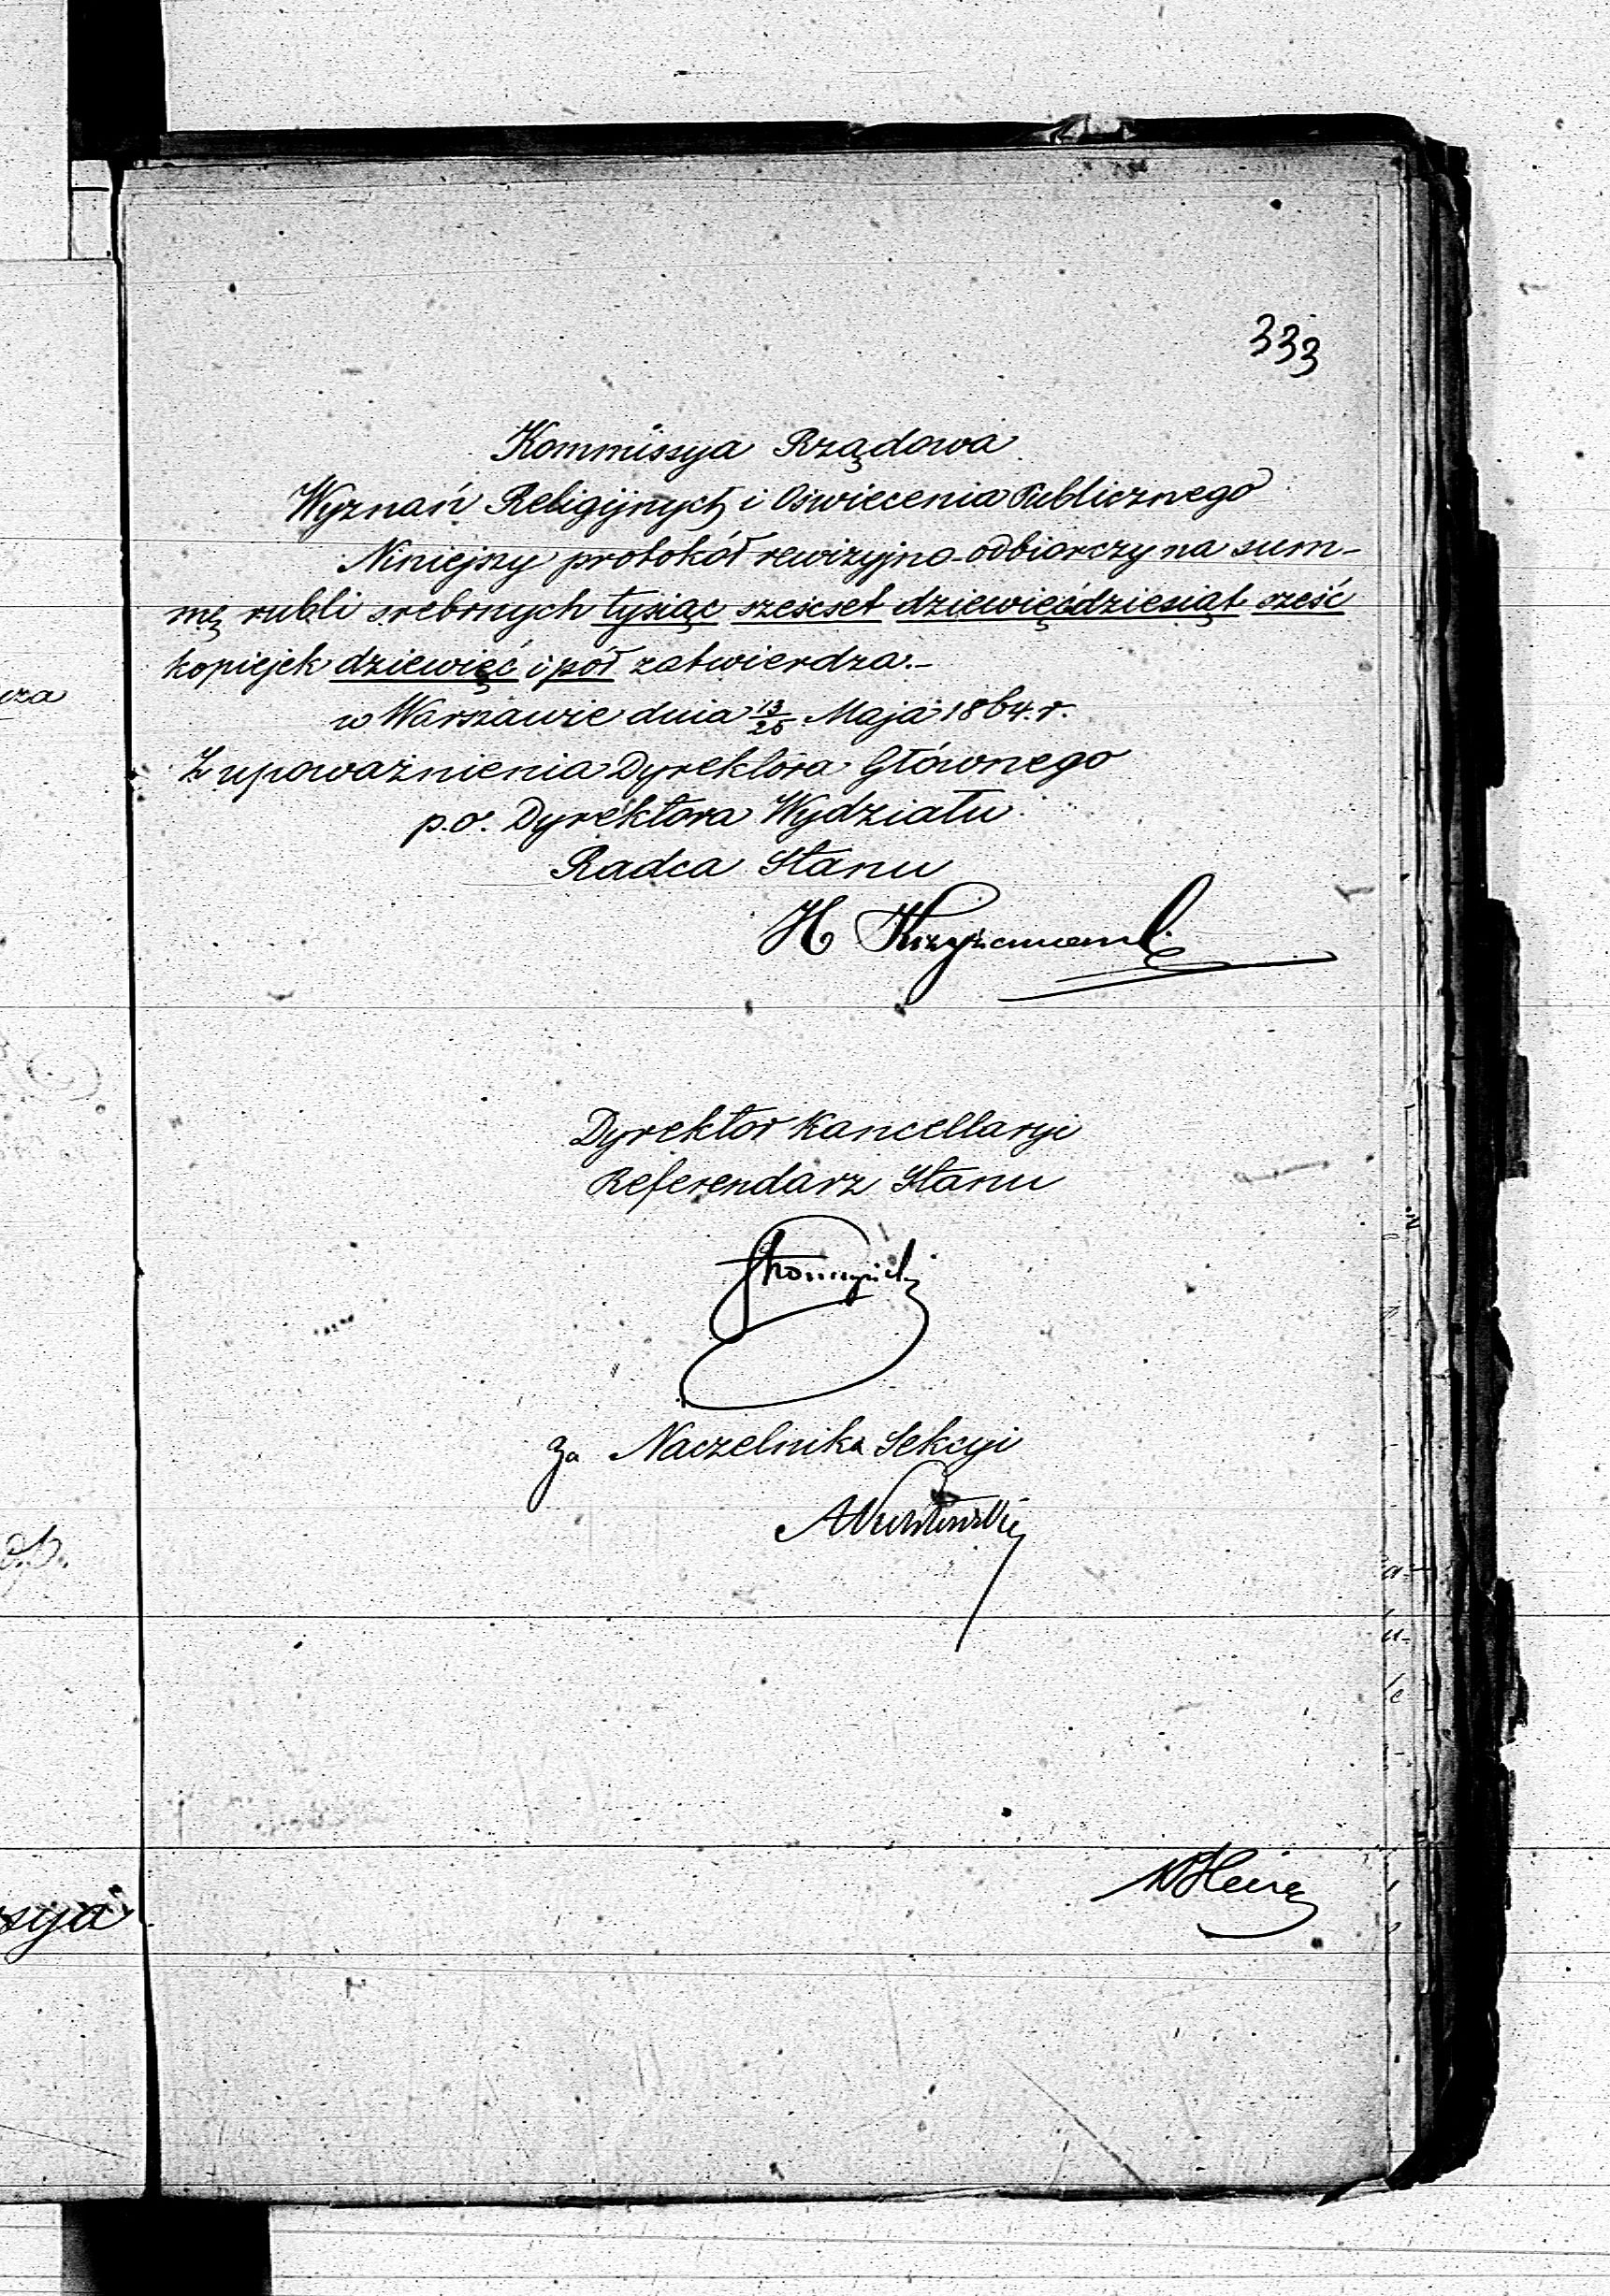 333
Kommissya Rządowa
Wyznań Religijnych i Oświecenia Publicznego
Niniejszy protokół rewizyjno-odbiorczy na sum-
mę rubli srebrnych tysiąc sześcset dziewięćdziesiąt sześć
kopiejek dziewięć i pół zatwierdza.-
w Warszawie dnia 13/25 Maja 1864. r.
Z upoważnienia Dyrektora Głównego
p.o. Dyrektora Wydziału
Radca Stanu
H Krzyżanowski
Dyrektor Kancellaryi
Referendarz Stanu
Stronczyński
Za Naczelnika Sekcyi